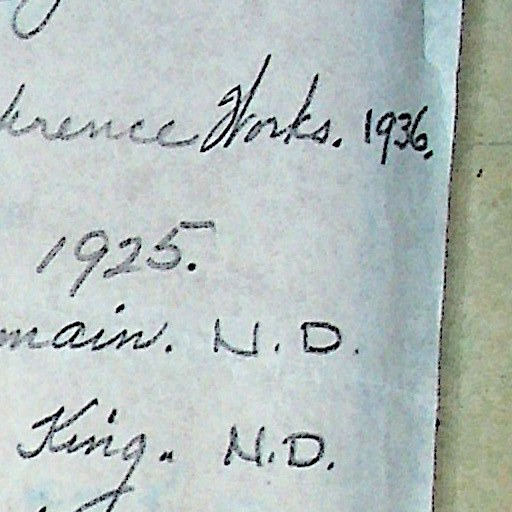 Works. 1936.
1925.
main. N.D.
King. N.D.